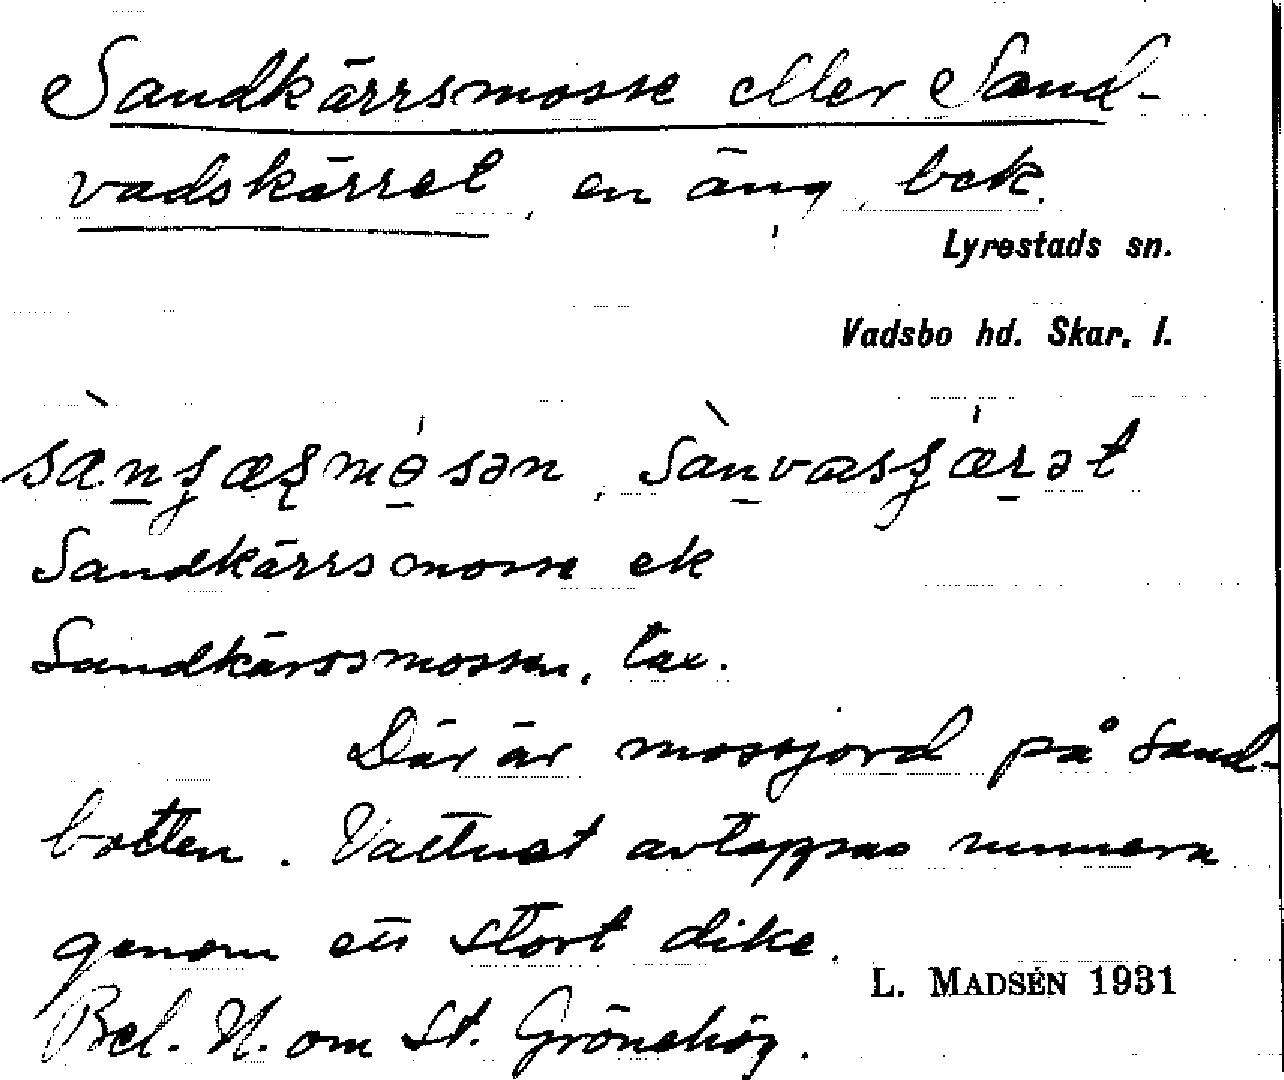 Sandkärrsmosse eller Sand-
vadskärret, en äng, bek.
Lyrestads sn.
Vadsbo hd. Skar. l.
Sandkärrsmosse ek
Sandkärrsmossen, lax.
Där är mossjord på sand-
botten. Vattnet avtappas numera
genom ett stort dike.
L. MADSÉN 1931
Bel. N. om St. Grönehög.